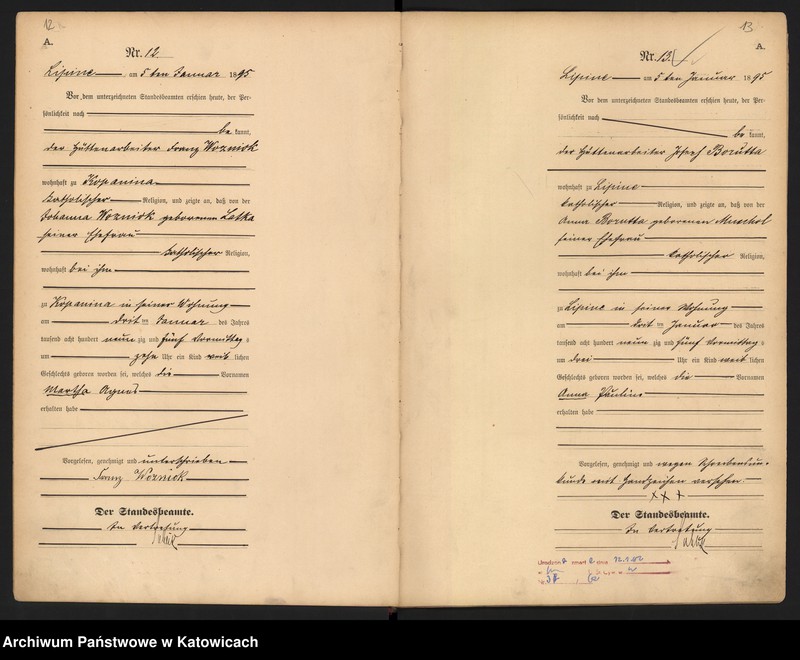 12
A.
Nr. 12
Lipine am 5ten Januar 1895
Vor dem unterzeichneten Standesbeamten erschien heute, der Per-
sönlichkeit nach
be kannt,
der Hüttenarbeiter Franz Wozniok
wohnhaft zu Kopanina
katholischer Religion, und zeigte an, daß von der
Johanna Wozniok geborenen Latka
seiner Ehefrau
katholischer Religion,
wohnhaft bei ihm
zu Kopanina in seiner Wohnung
am drit ten Januar des Jahres
tausend acht hundert neun zig und fünf Vormittag s
um zehn Uhr ein Kind weib lichen
Geschlechts geboren worden sei, welches die Vornamen
Martha Agnes
erhalten habe
Vorgelesen, genehmigt und unterschrieben
Franz Wozniok
Der Standesbeamte.
In Vertretung
13
A.
Nr. 13.
Lipine am 5ten Januar 1895
Vor dem unterzeichneten Standesbeamten erschien heute, der Per-
sönlichkeit nach
be kannt,
der Hüttenarbeiter Josef Borutta
wohnhaft zu Lipine
katholischer Religion, und zeigte an, daß von der
Anna Borutta geborenen Muschol
seiner Ehefrau
katholischer Religion,
wohnhaft bei ihm
zu Lipine in seiner Wohnung
am drit ten Januar des Jahres
tausend acht hundert neun zig und fünf Vormittag s
um drei Uhr ein Kind weib lichen
Geschlechts geboren worden sei, welches die Vornamen
Anna Pauline
erhalten habe
Vorgelesen, genehmigt und wegen Schreibensun-
kunde mit Handzeichen versehen.
XX +
Der Standesbeamte.
In Vertretung
Archiwum Państwowe w Katowicach